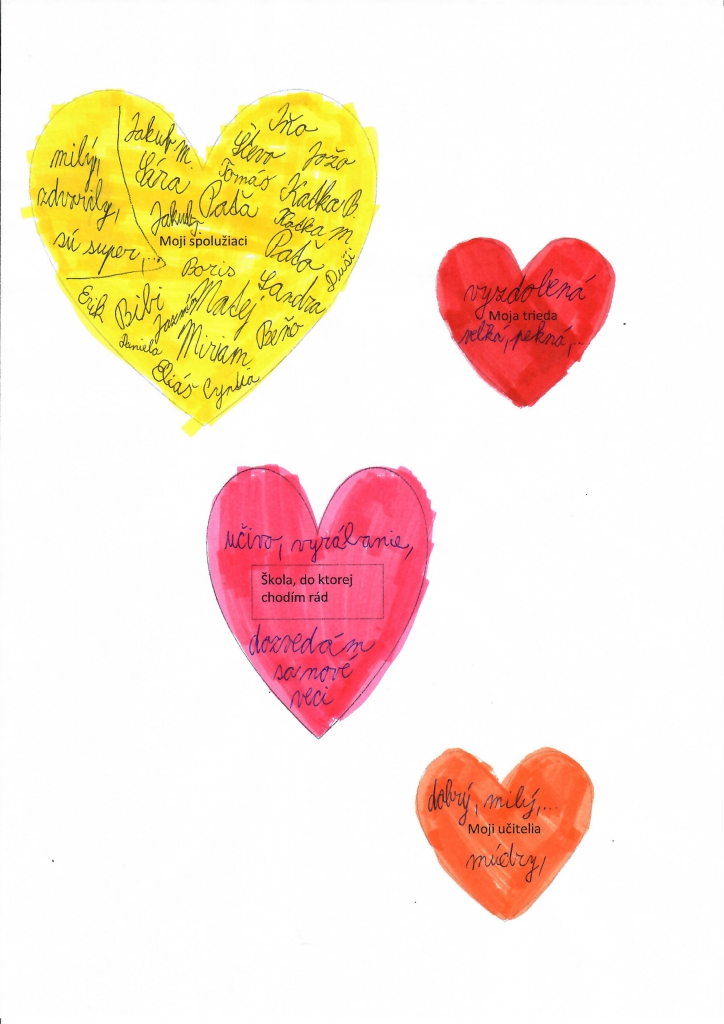 milý,
zdvorilý,
sú super,...
Jakub M.
Sára
Jakub
Iňo
Števo
Jožo
Tomáš
Paťa
Katka B.
Katka M
Paťo
Duši
Moji spolužiaci
Boris
Sandra
Erik
Bibi
Matej
Daniela
Miriam
Beňo
Eliáš
Cyntia
vyzdobená
Moja trieda
velká, pekná,..
učivo, vyrábanie,
Škola, do ktorej
chodím rád
dozvedám
sa nové
veci
dobrý, milý,...
Moji učitelia
múdry,